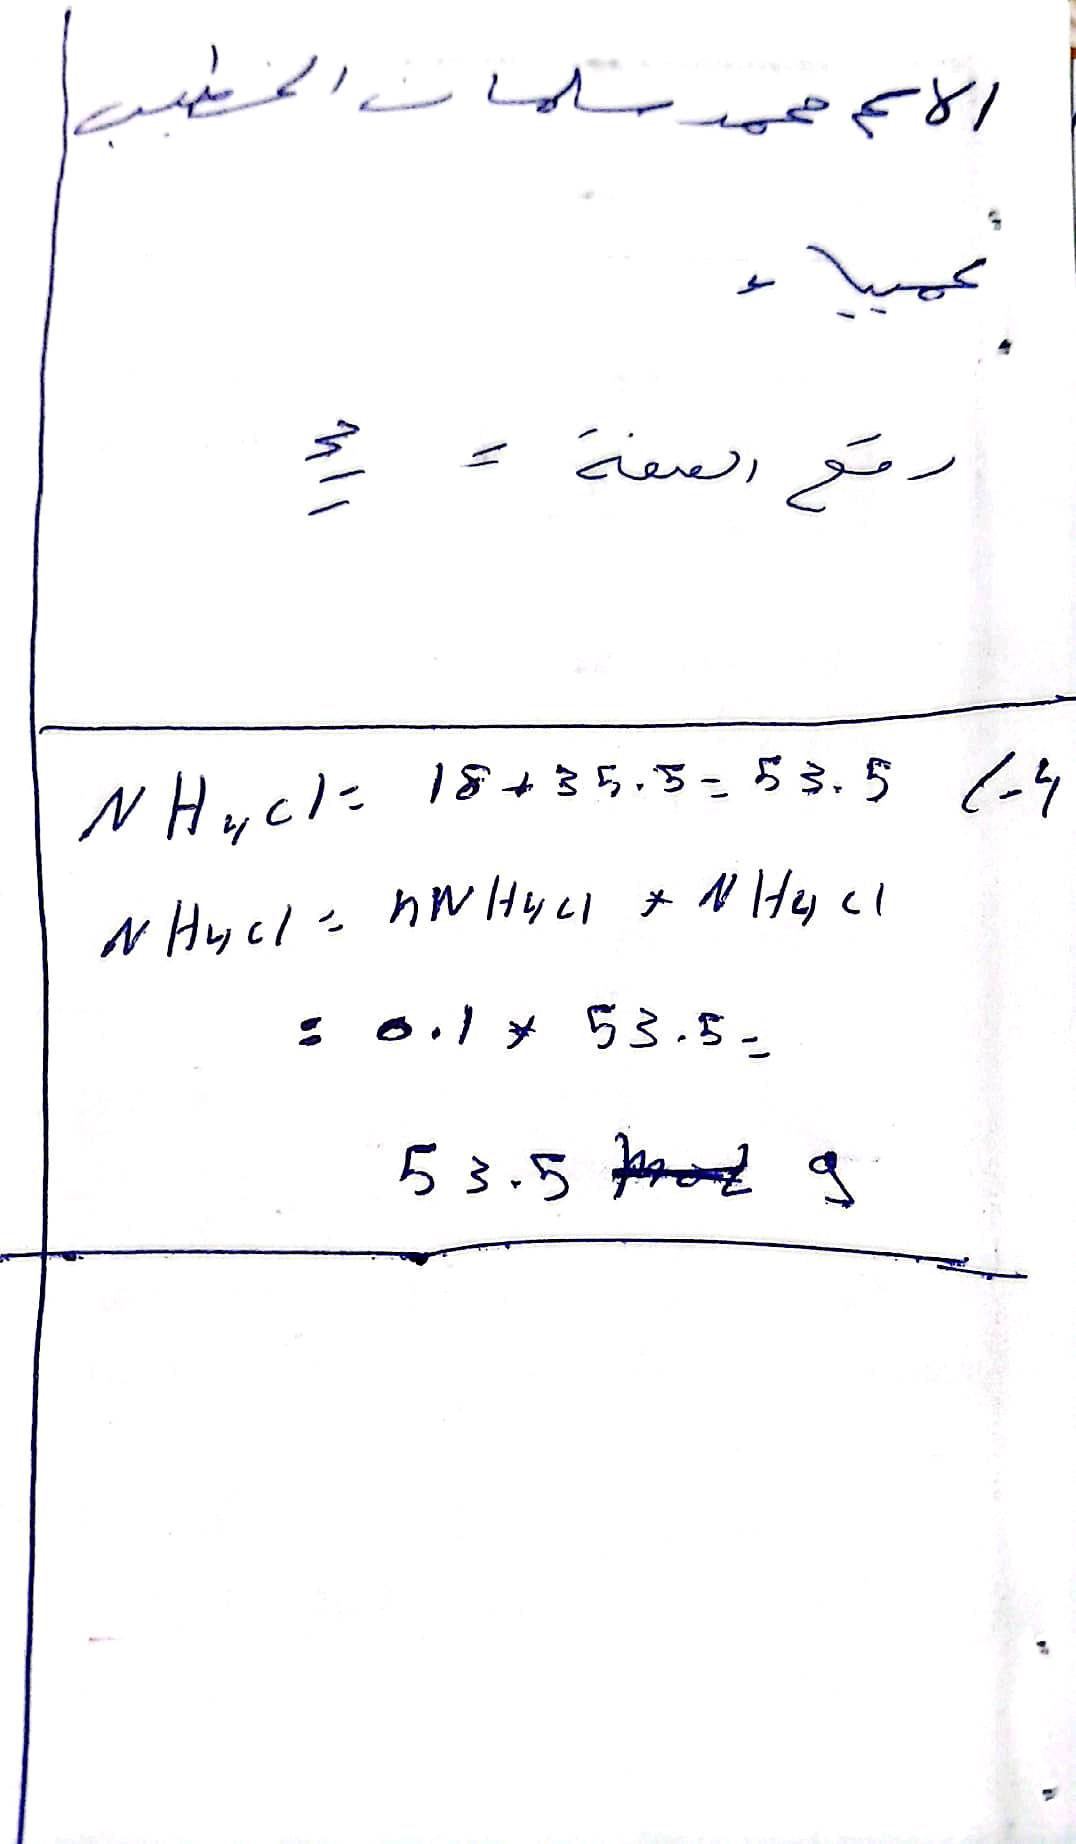 الاسم محمد سلمان الخطيب
كيمياء
رقم الصفحة = 3
4-) NH4Cl = 18 + 35.5 = 53.5
NH4Cl = nNH4Cl * NH4Cl
= 0.1 * 53.5 =
53.5 g